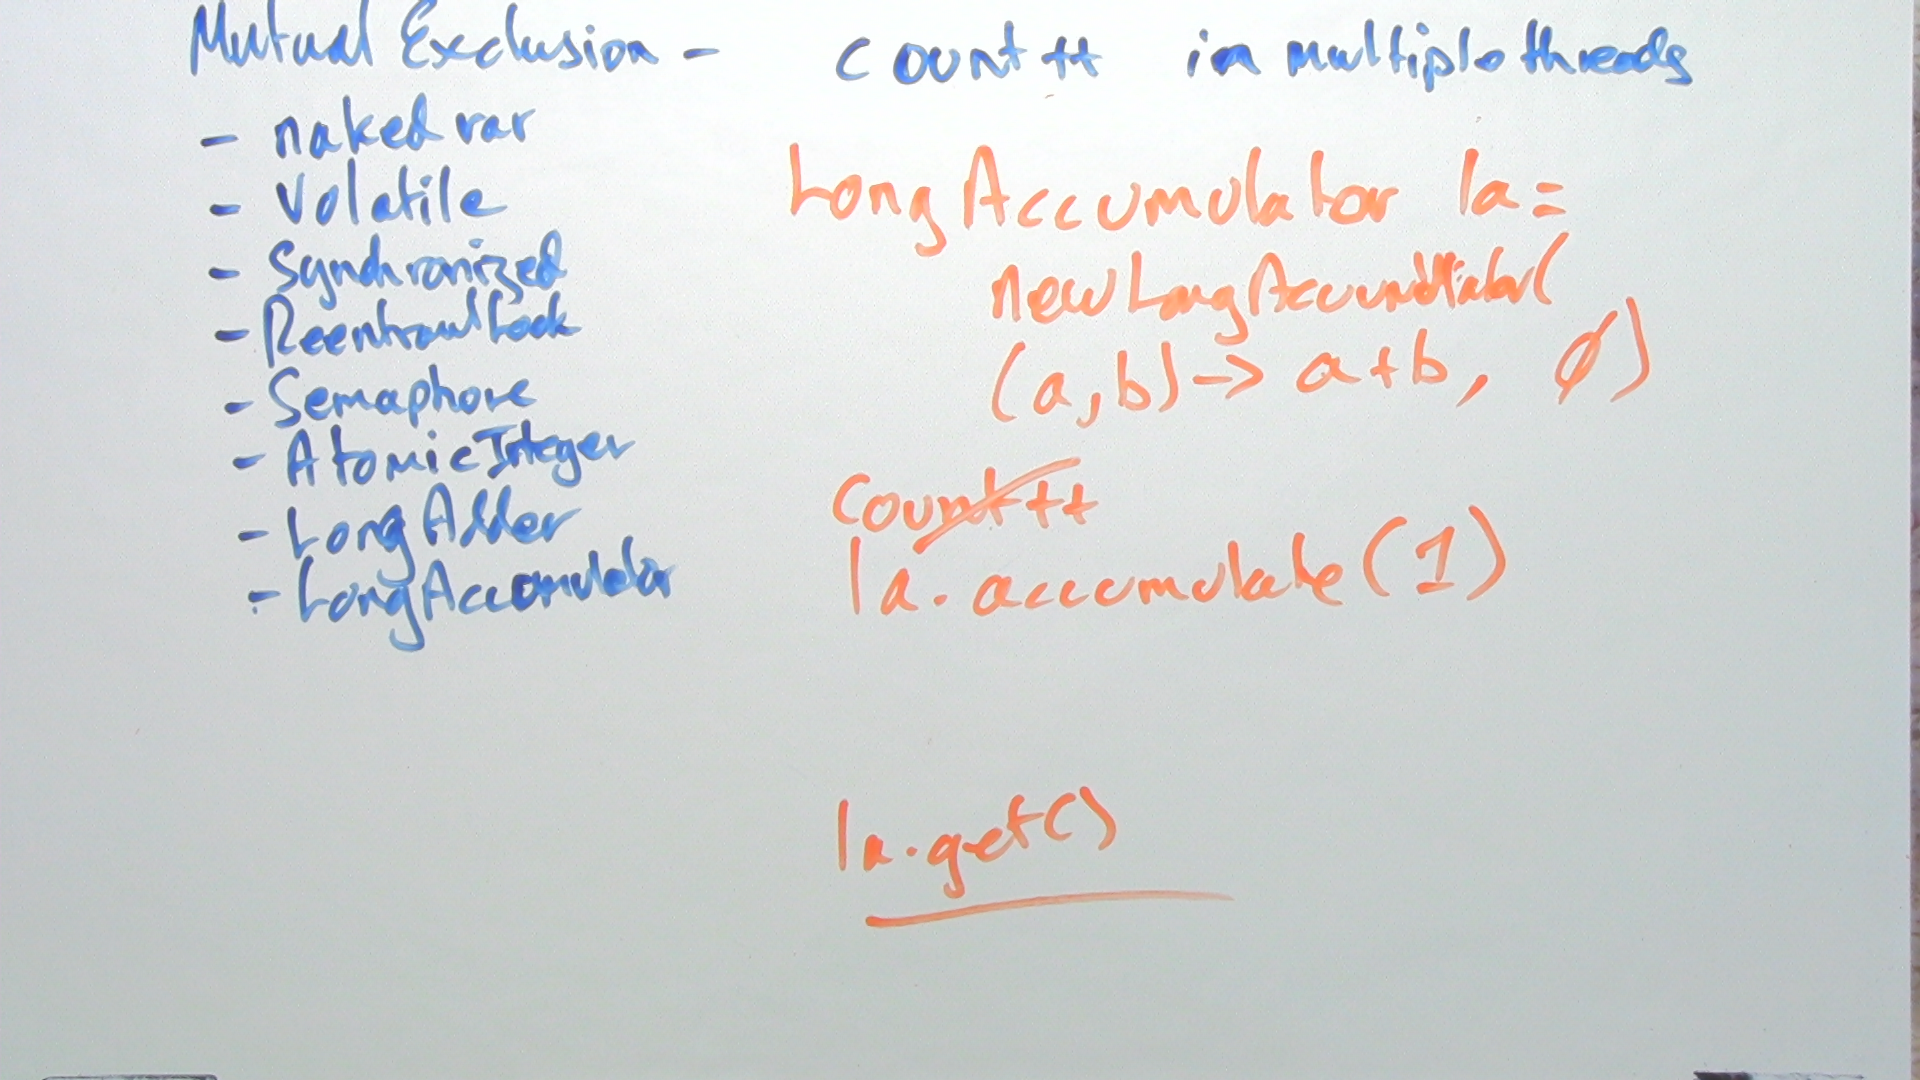 Mutual Exclusion - count++ in multiple threads
- naked var
- Volatile
- Synchronized
- ReentrantLock
- Semaphore
- AtomicInteger
- LongAdder
- LongAccumulator
LongAccumulator la =
new LongAccumulator(
(a,b) -> a+b, 0)
count++
la.accumulate(1)
la.get()